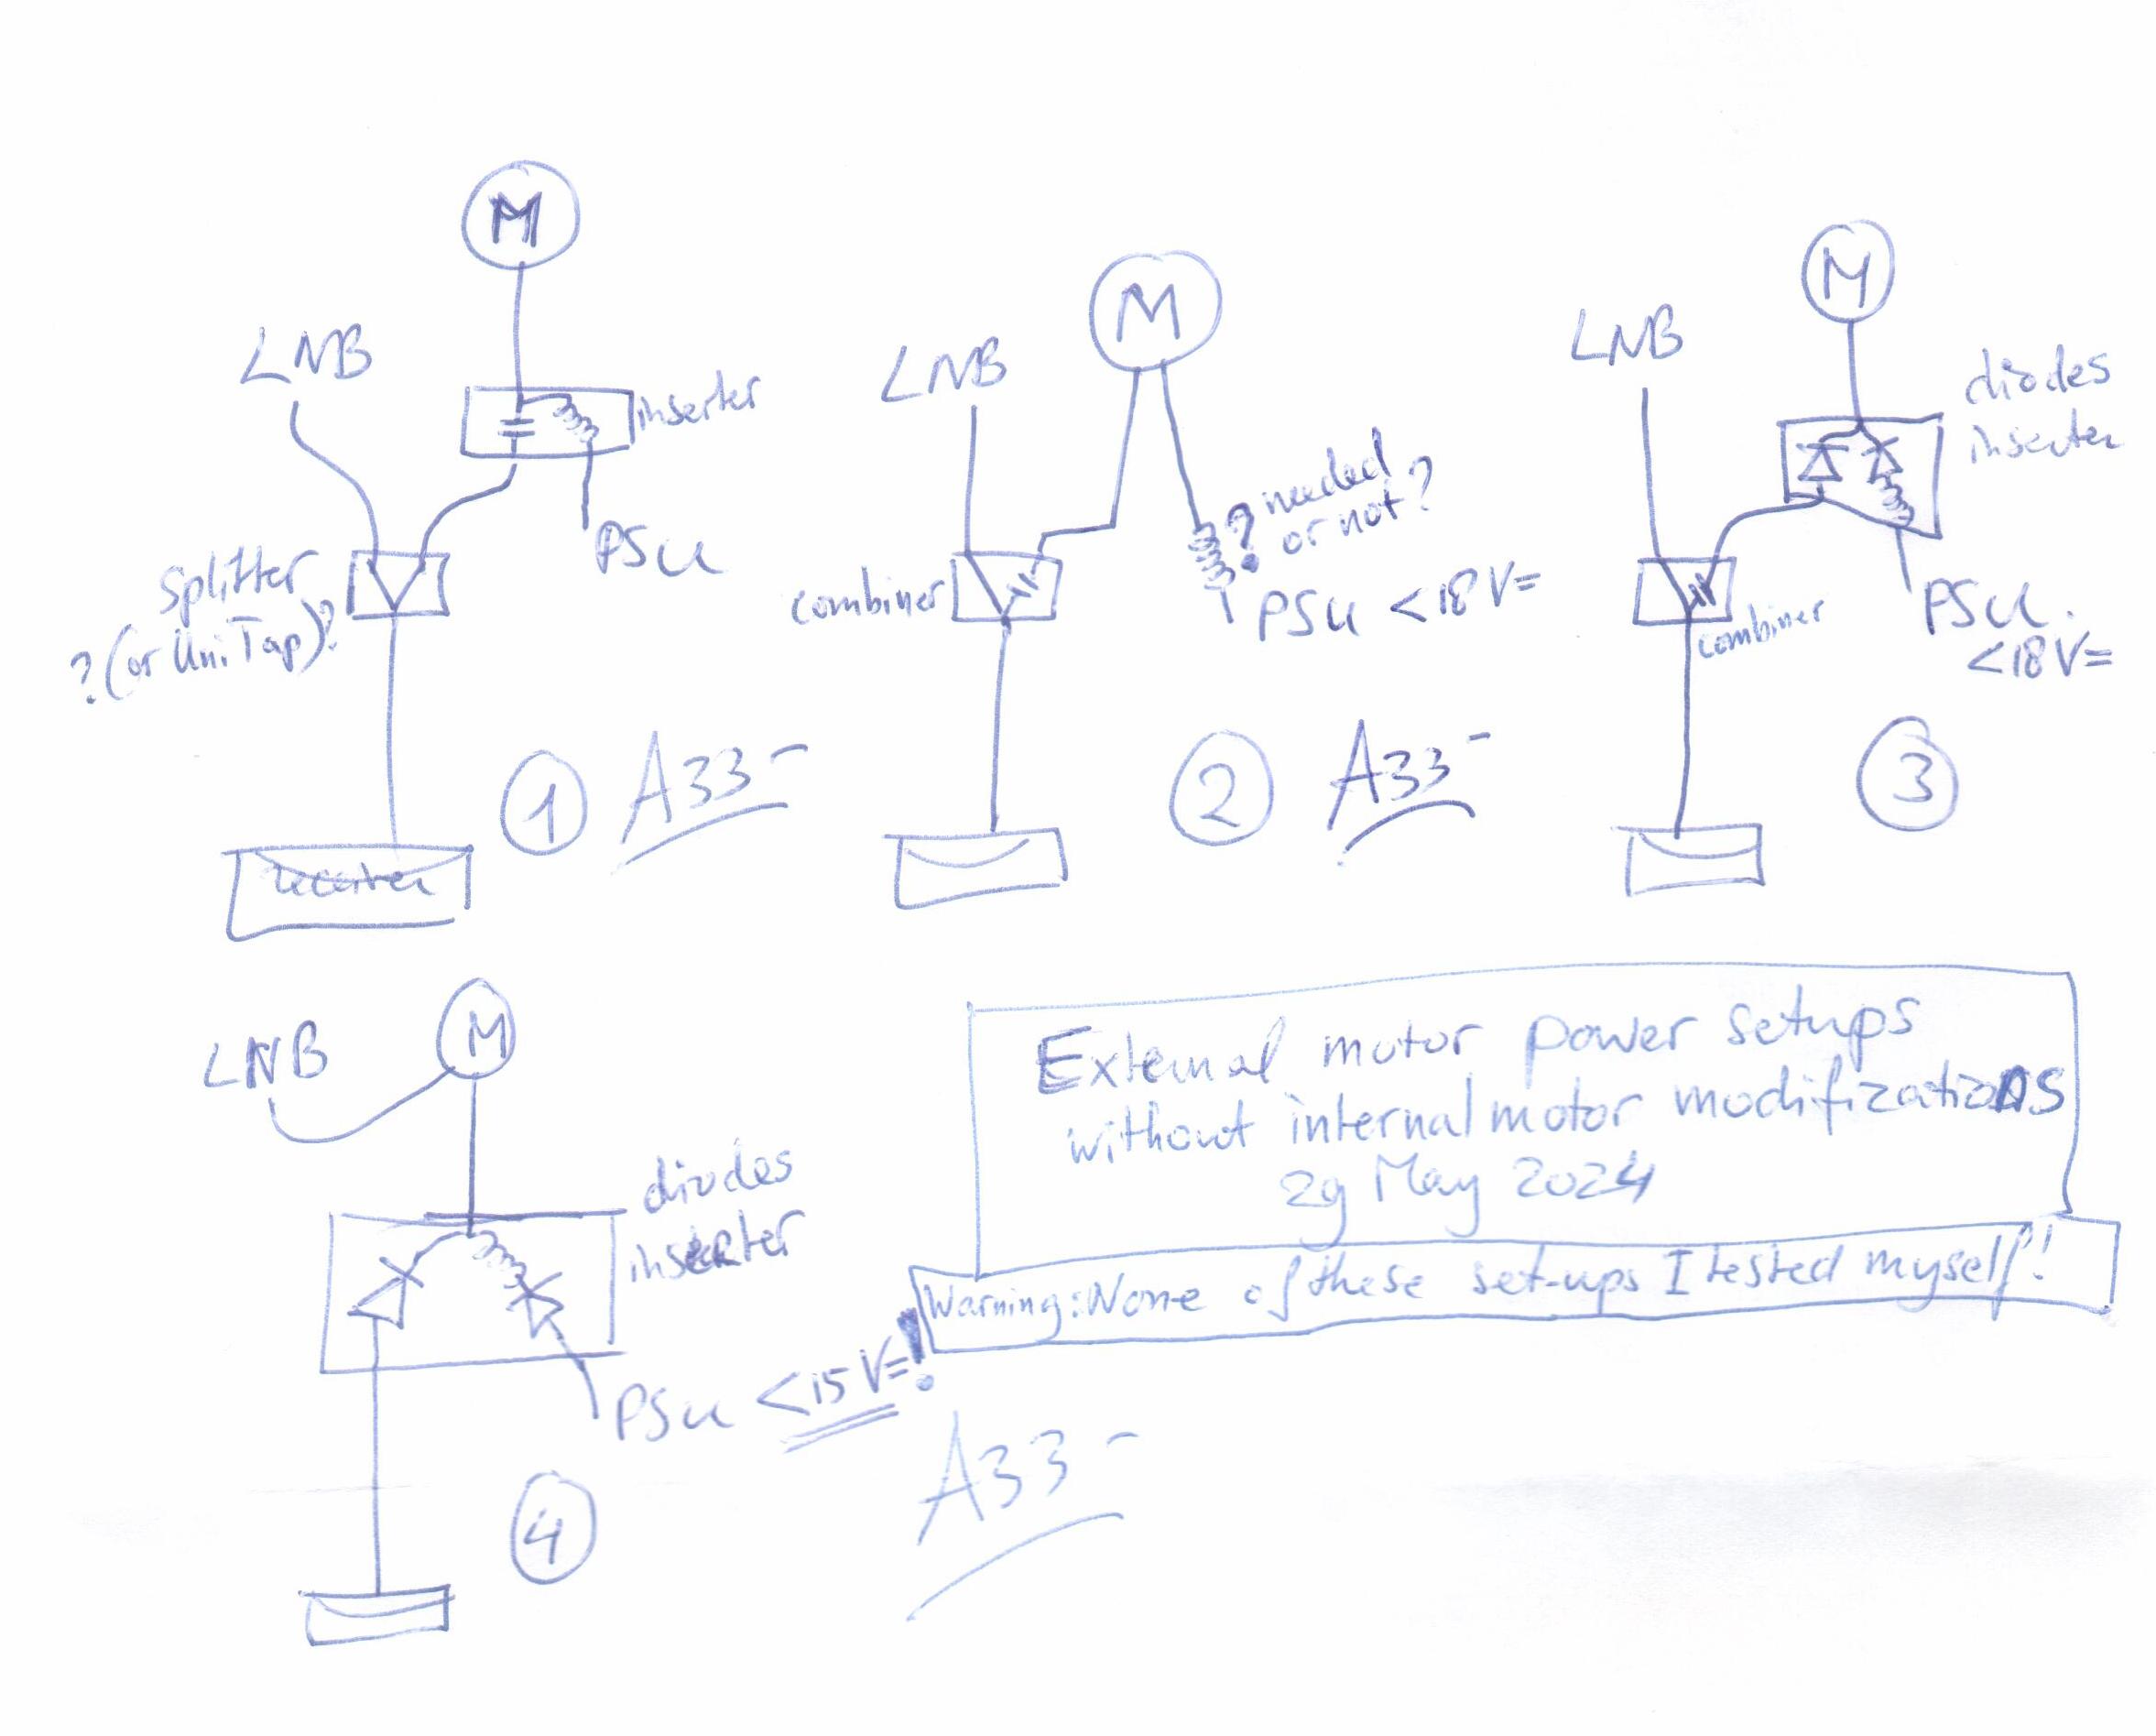 M
LNB
inserter
PSU
Splitter
?(or UniTap)?
1
A33-
receiver
M
LNB
? needed
or not?
combiner
PSU <18V=
2
A33-
M
LNB
diodes
inserter
combiner
PSU
<18V=
3
LNB
M
diodes
inserter
PSU <15V=!
4
External motor power setups
without internal motor modifizations
29 May 2024
Warning: None of these set-ups I tested myself!
A33-